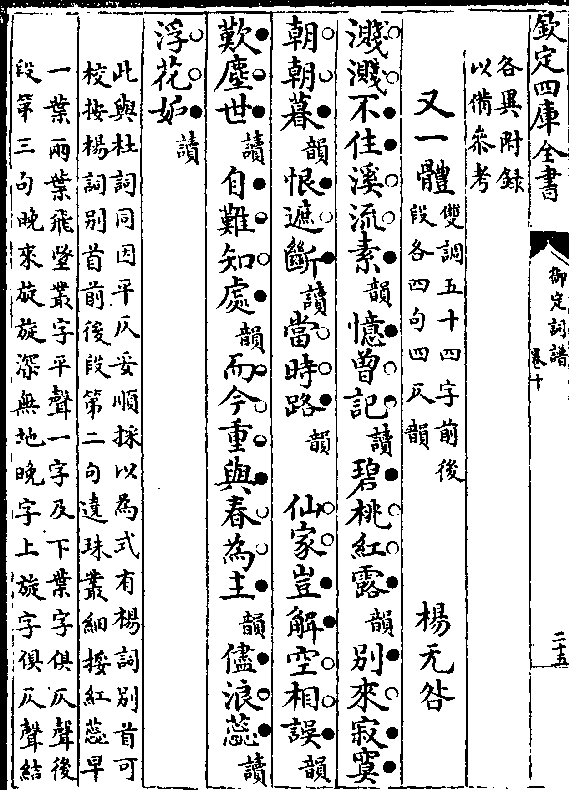 欽定四庫全書
御定詞譜
卷十
二十五
各異附録
以備叅考
又一體
雙調五十四字前後
段各四句四仄韻
楊无咎
濺濺不住溪流素韻憶曾記讀碧桃紅露韻别來寂寞
朝朝暮韻恨遮斷讀當時路韻仙家豈解空相誤韻
歎塵世讀自難知處韻而今重與春為主韻儘浪蕊讀
浮花妒讀
此與杜詞同因平仄妥順採以為式有楊詞别首可
校按楊詞别首前後段第二句遶珠叢細挼紅蕊早
一葉兩葉飛墮叢字平聲一字及下葉字俱仄聲後
段第三句晚來旋旋深無地晚字上旋字俱仄聲結